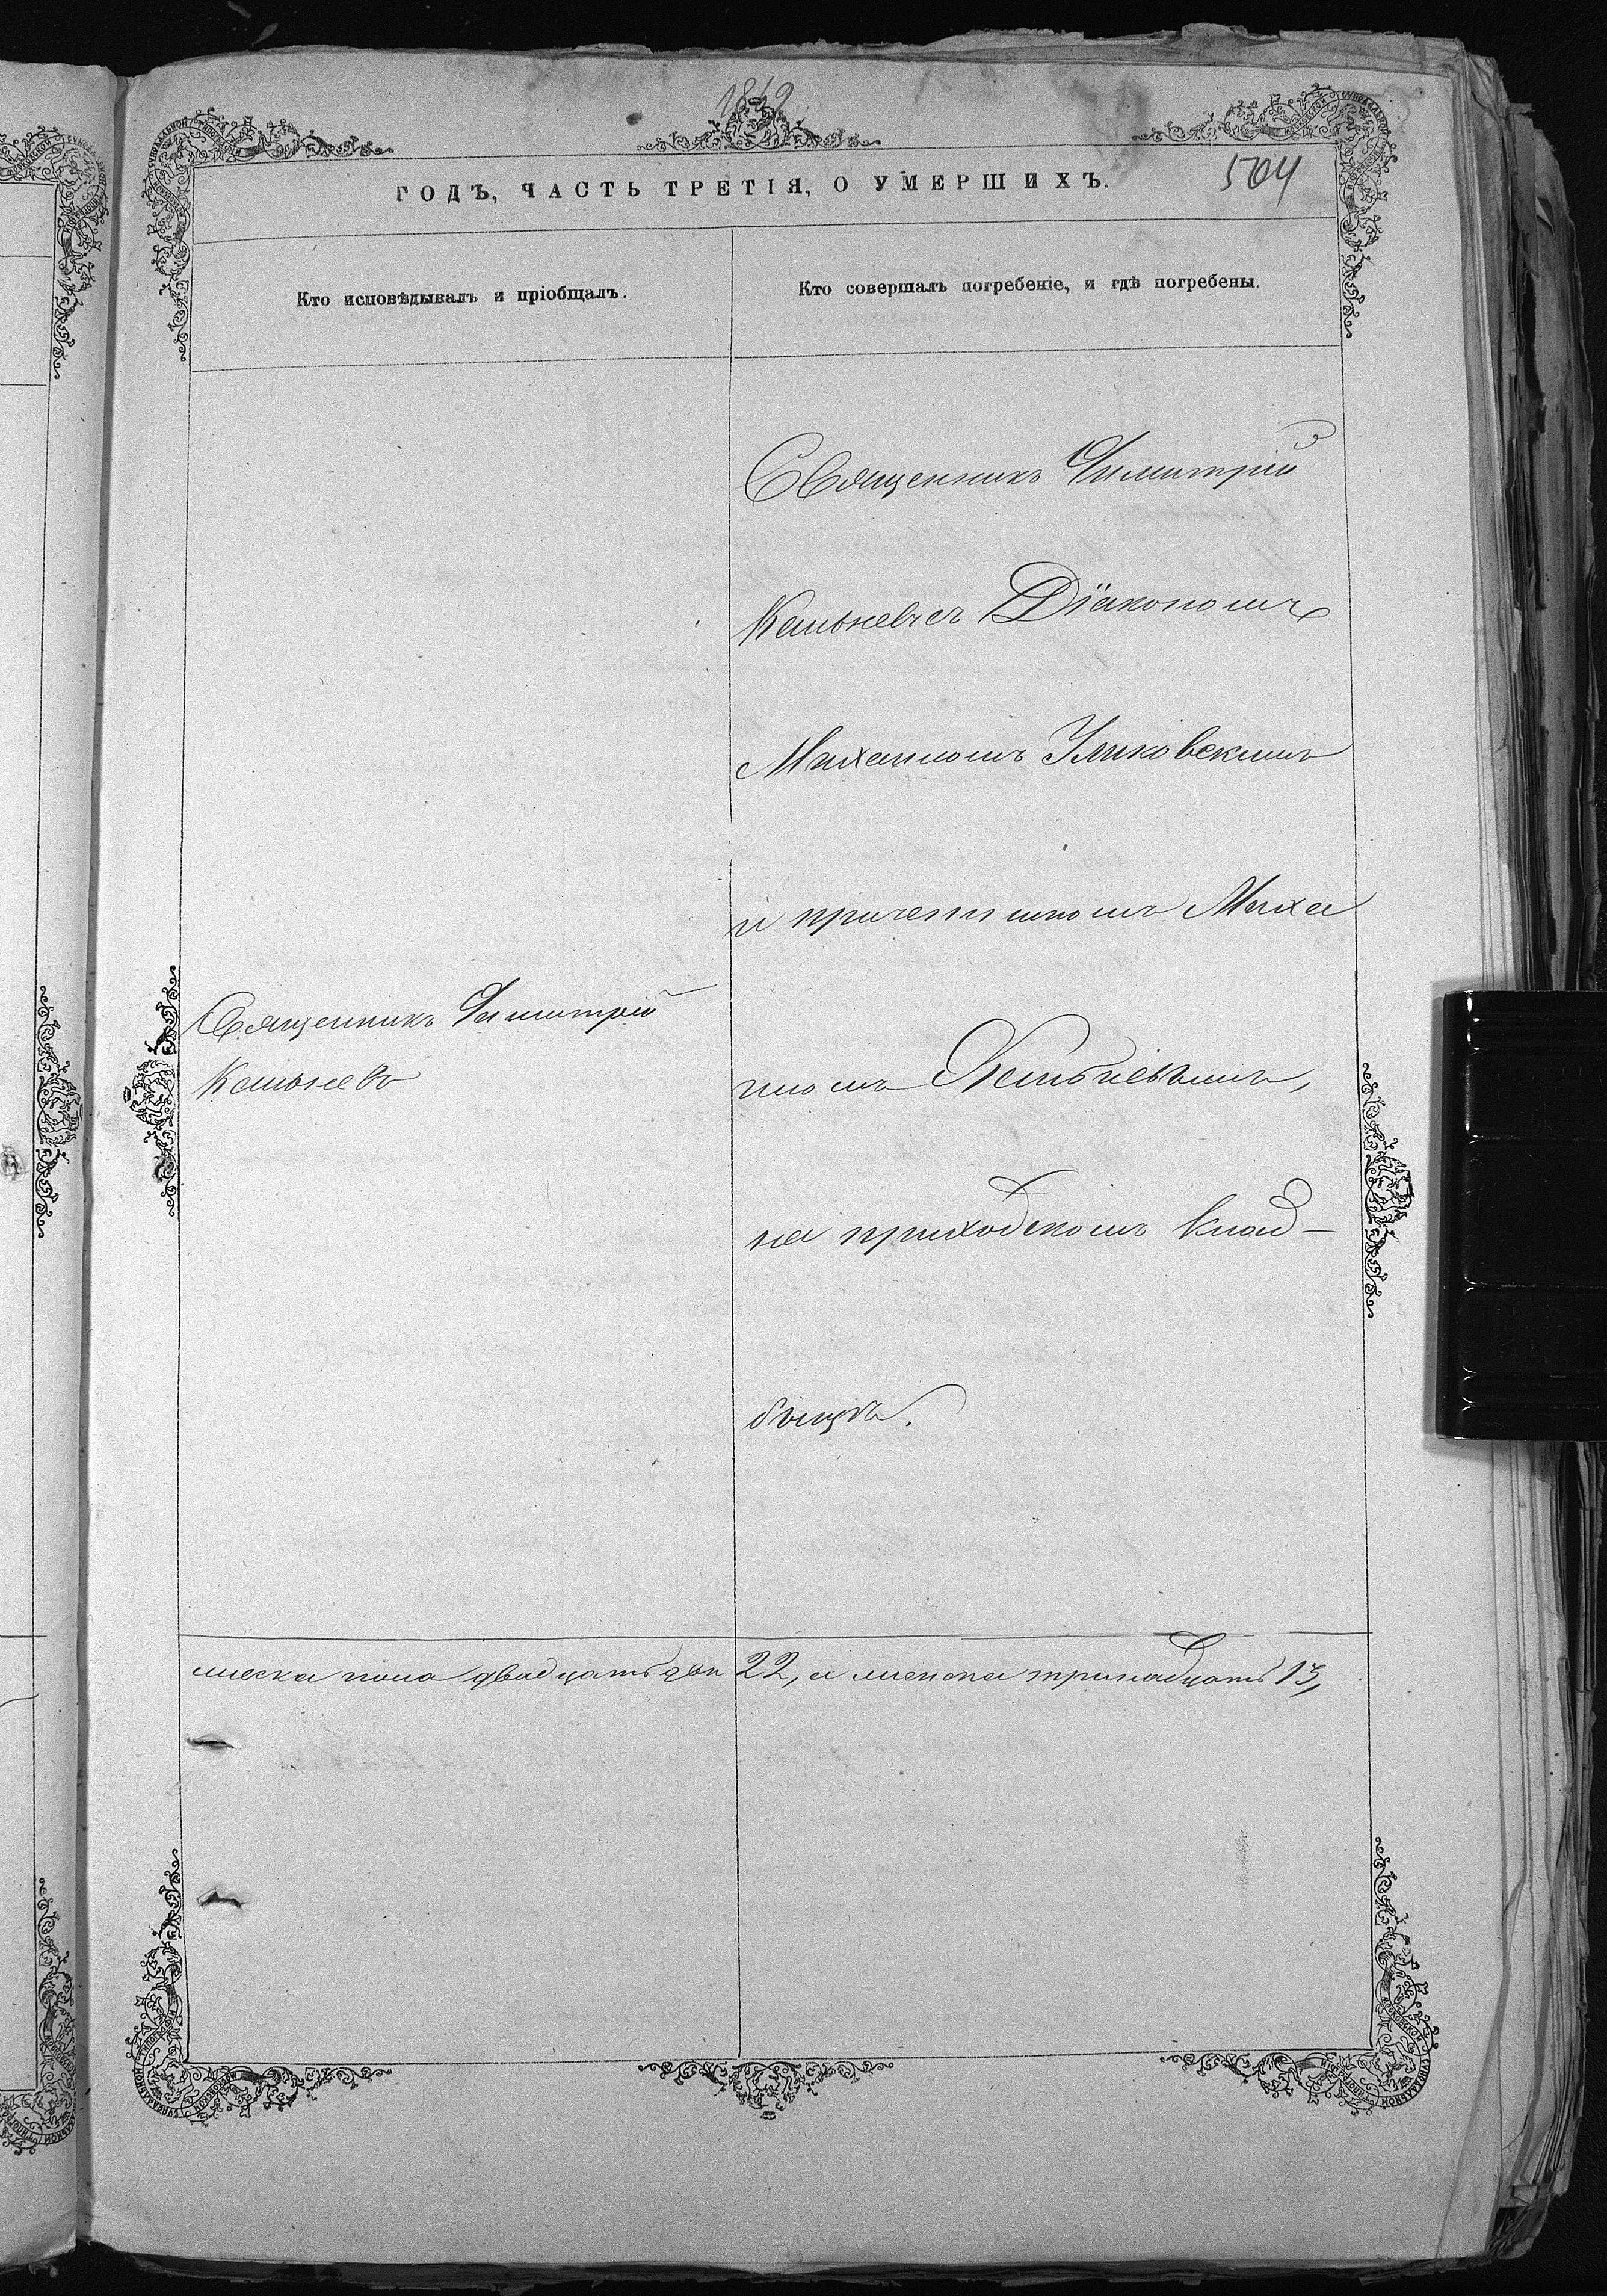 1869
504
ГОДЪ, ЧАСТЬ ТРЕТІЯ, О УМЕРШИХЪ.
Кто исповѣдывалъ и пріобщалъ.
Кто совершалъ погребеніе, и гдѣ погребены.
Священникъ Димитрій
Кельневъ
Священникъ Димитрій
Кельневъ съ Діакономъ
Михаиломъ Умковскимъ
и причетникомъ Миха
иломъ Кельневымъ,
на приходскомъ клад-
бищѣ.
мужеска пола двадцать два 22, а женска тринадцать 13,